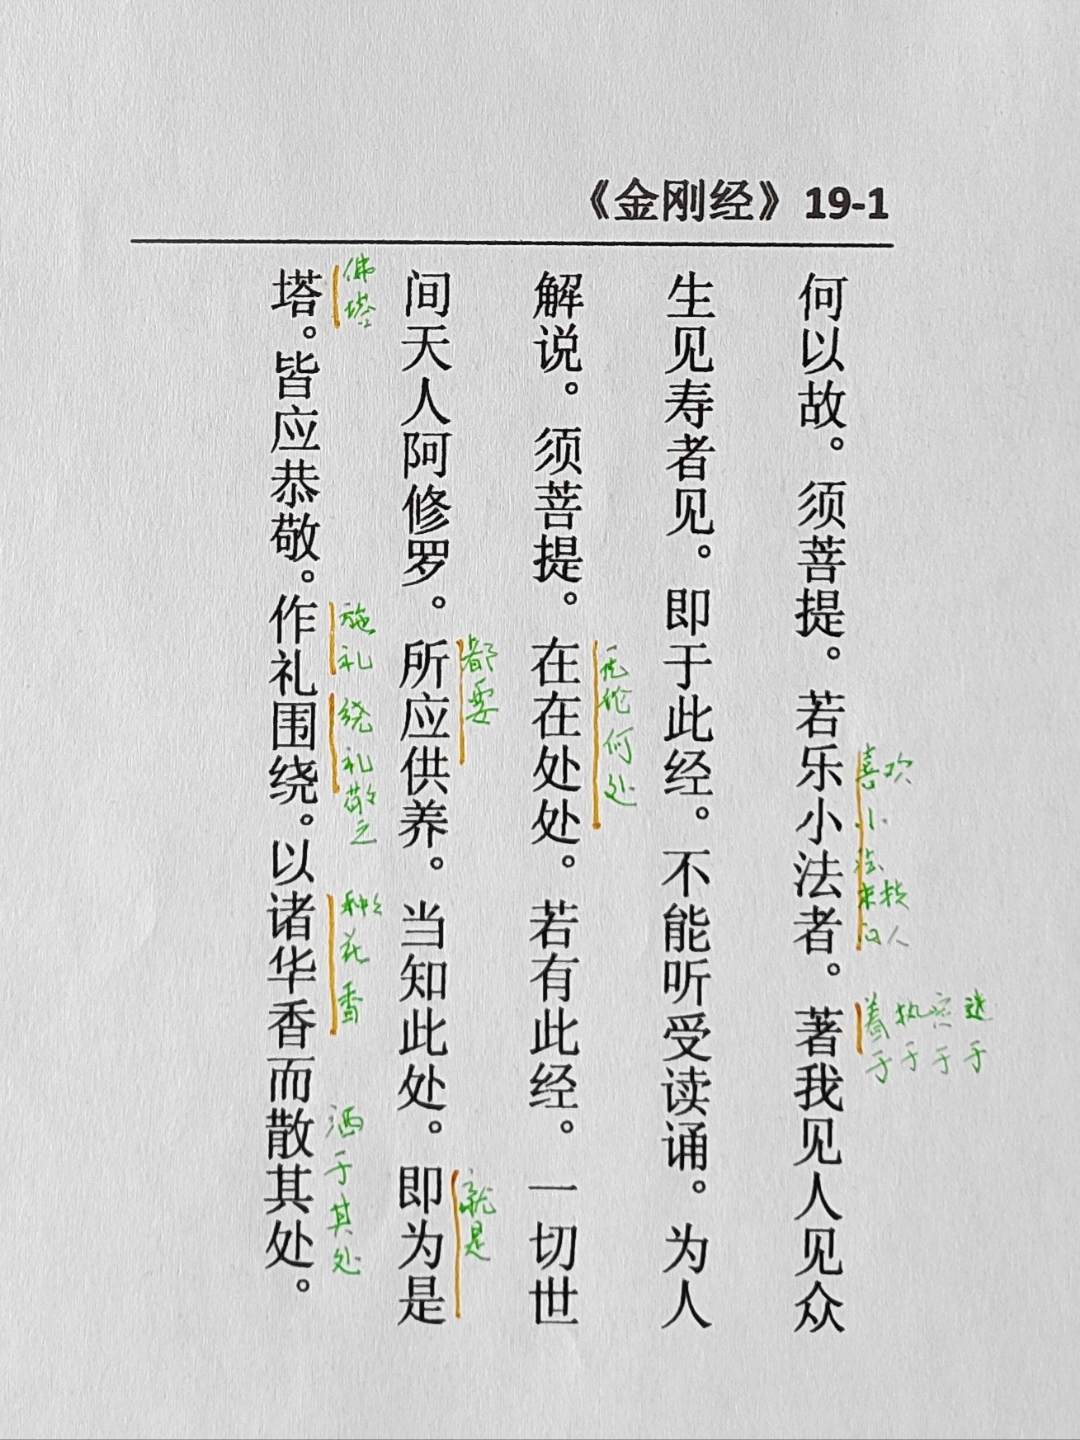 《金刚经》19-1
何以故。须菩提。若乐小法者。著我见人见众
喜欢
小
法
着于 执于 于 迷于
生见寿者见。即于此经。不能听受读诵。为人
解说。须菩提。在在处处。若有此经。一切世
无论何处
间天人阿修罗。所应供养。当知此处。即为是
都要
就是
塔。皆应恭敬。作礼围绕。以诸华香而散其处。
佛塔
施礼
绕礼敬之
种种花香
洒于其处